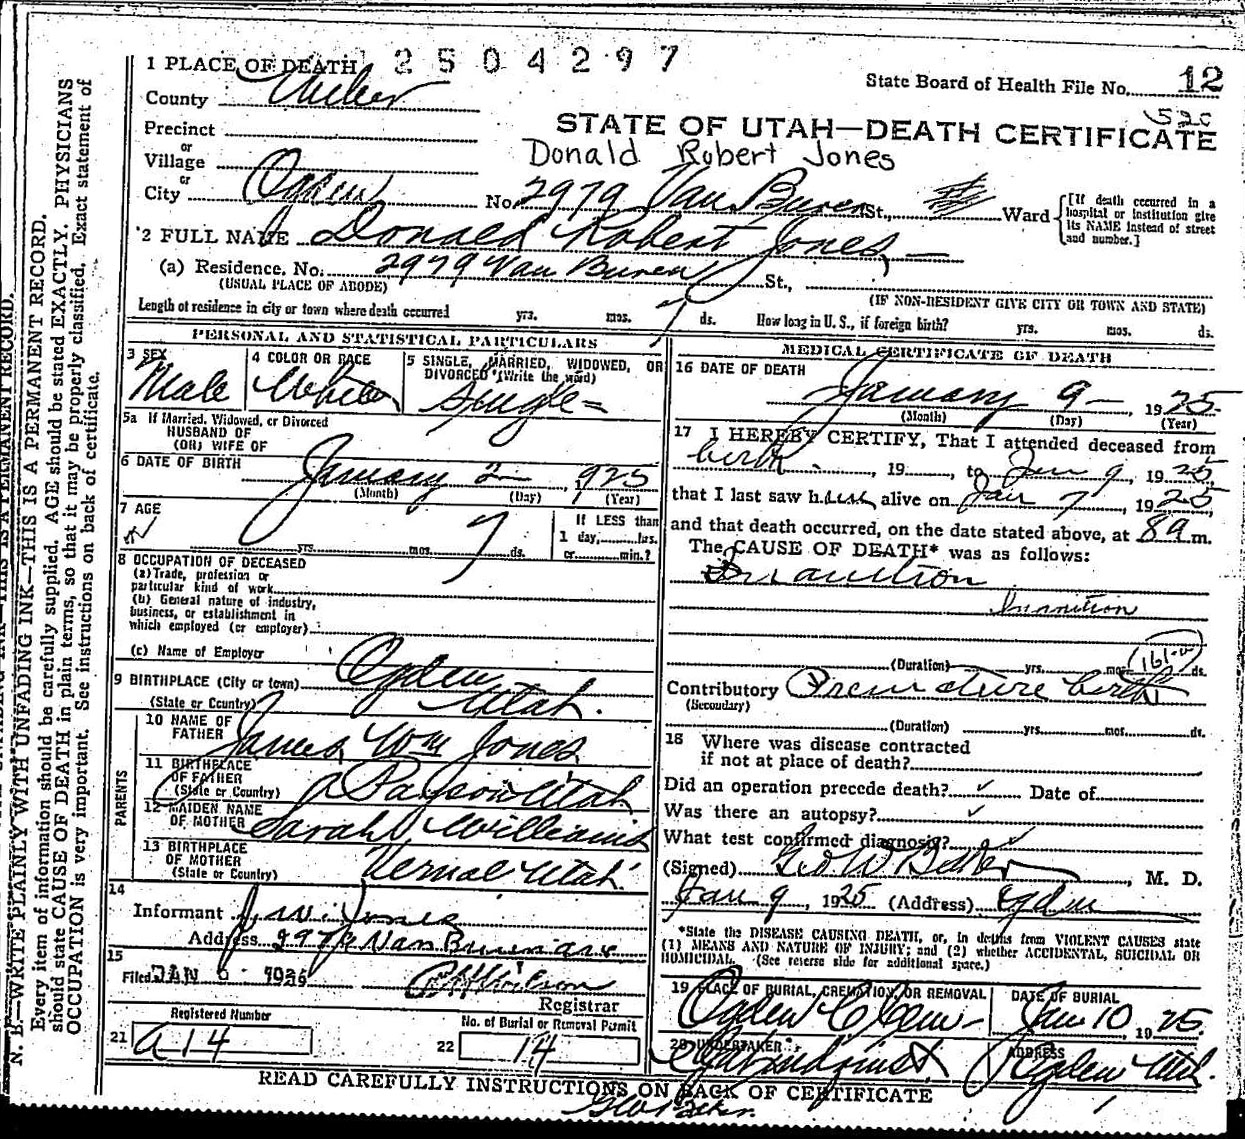 2504297
1 PLACE OF DEATH
State Board of Health File No. 12
County Weber
STATE OF UTAH—DEATH CERTIFICATE
Precinct
or
Donald Robert Jones
Village
or
City Ogden No. 2979 Van Buren St., Ward
[If death occurred in a
hospital or institution give
its NAME instead of street
and number.]
2 FULL NAME Donald Robert Jones
(a) Residence. No. 2979 Van Buren St.,
(USUAL PLACE OF ABODE) (IF NON-RESIDENT GIVE CITY OR TOWN AND STATE)
Length of residence in city or town where death occurred yrs. mos. 7 ds. How long in U. S., if foreign birth? yrs. mos. ds.
PERSONAL AND STATISTICAL PARTICULARS
3 SEX
Male
4 COLOR OR RACE
White
5 SINGLE, MARRIED, WIDOWED, OR
DIVORCED (Write the word)
Single
5a If Married, Widowed, or Divorced
HUSBAND OF
(OR) WIFE OF
6 DATE OF BIRTH January 2 1925
(Month) (Day) (Year)
7 AGE
yrs. mos. 7 ds.
If LESS than
1 day, hrs.
or min.?
8 OCCUPATION OF DECEASED
(a) Trade, profession or
particular kind of work
(b) General nature of industry,
business, or establishment in
which employed (or employer)
(c) Name of Employer
9 BIRTHPLACE (City or town) Ogden
(State or Country) Utah.
PARENTS
10 NAME OF
FATHER James Wm Jones
11 BIRTHPLACE
OF FATHER
(State or Country) Payson Utah
12 MAIDEN NAME
OF MOTHER Sarah Williams
13 BIRTHPLACE
OF MOTHER
(State or Country) Vernal Utah
14
Informant J. W. Jones
Address 2979 Van Buren ave
15
Filed JAN
Registrar
Registered Number
21 a14
No. of Burial or Removal Permit
22 14
MEDICAL CERTIFICATE OF DEATH
16 DATE OF DEATH
January 9 , 1925
(Month) (Day) (Year)
17 I HEREBY CERTIFY, That I attended deceased from
birth , 19 to Jan 9 , 1925
that I last saw h alive on Jan 7 , 1925,
and that death occurred, on the date stated above, at 8 a m.
The CAUSE OF DEATH* was as follows:
Inanition
Inanition
(Duration) yrs. mos. ds.
Contributory Premature birth
(Secondary)
(Duration) yrs. mos. ds.
18 Where was disease contracted
if not at place of death?
Did an operation precede death? Date of
Was there an autopsy?
What test confirmed diagnosis?
(Signed) Geo W Baker , M. D.
Jan 9 , 1925 (Address) Ogden
*State the DISEASE CAUSING DEATH, or, in deaths from VIOLENT CAUSES state
(1) MEANS AND NATURE OF INJURY; and (2) whether ACCIDENTAL, SUICIDAL OR
HOMICIDAL. (See reverse side for additional space.)
19 PLACE OF BURIAL, CREMATION, OR REMOVAL
Ogden
DATE OF BURIAL
Jan 10 , 1925.
20 UNDERTAKER
ADDRESS
Ogden Utah.
READ CAREFULLY INSTRUCTIONS ON BACK OF CERTIFICATE
Geo W Baker.
N. B.—WRITE PLAINLY WITH UNFADING INK—THIS IS A PERMANENT RECORD.
Every item of information should be carefully supplied. AGE should be stated EXACTLY. PHYSICIANS
should state CAUSE OF DEATH in plain terms, so that it may be properly classified. Exact statement of
OCCUPATION is very important. See instructions on back of certificate.